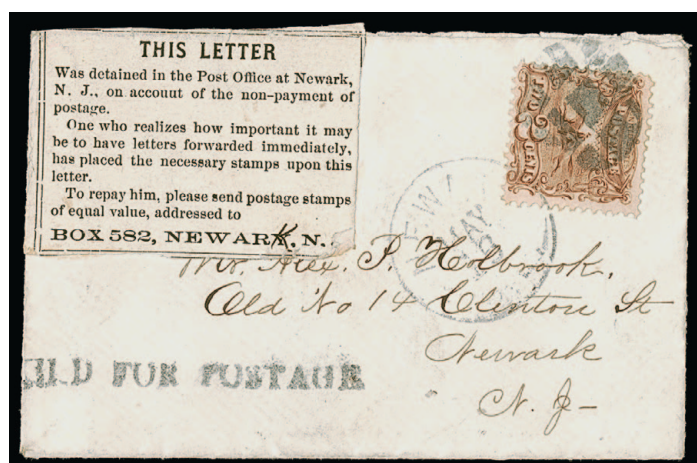 THIS LETTER
Was detained in the Post Office at Newark,
N. J., on account of the non-payment of
postage.
One who realizes how important it may
be to have letters forwarded immediately,
has placed the necessary stamps upon this
letter.
To repay him, please send postage stamps
of equal value, addressed to
BOX 582, NEWARK, N.
TWO 2 CENTS
MAY
Mr. Alex. P. Holbrook,
Old No 14 Clinton St
Newark
N. J-
HELD FOR POSTAGE